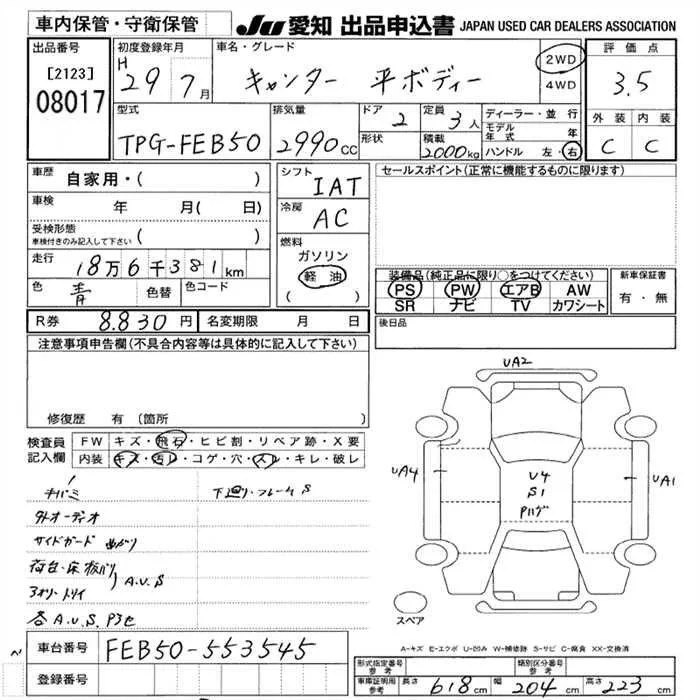 車内保管・守衛保管
JU 愛知 出品申込書 JAPAN USED CAR DEALERS ASSOCIATION
出品番号
[2123]
08017
初度登録年月
H 29 7月
車名・グレード
キャンター 平ボディー
2WD
4WD
評価点
3.5
外装 内装
C C
型式
TPG-FEB50
排気量
2990cc
ドア
2
形状
定員
3人
積載
2000kg
ディーラー・並行
モデル年式 年
ハンドル 左・右
車歴
自家用・( )
車検
年 月( 日)
受検形態
車検付きのみ記入して下さい ( )
走行
18万6千381km
色
青
色替
色コード
シフト
IAT
冷房
AC
燃料
ガソリン
軽油
( )
セールスポイント(正常に機能するものに限ります)
装備品(純正品に限り○をつけてください)
PS PW エアB AW
SR ナビ TV カワシート
新車保証書
有・無
後日品
R券 8.830円
名変期限 月 日
注意事項申告欄(不具合内容等は具体的に記入して下さい)
修復歴 有(箇所 )
検査員記入欄
FW キズ・飛石・ヒビ割・リペア跡・X要
内装 キズ・汚レ・コゲ・穴・スレ・キレ・破レ
下廻り・フレームS
外オーディオ
サイドガード 曲がり
荷台・床板バリ
A.U.S
各A.U.S.
UA2
UA4
UA1
U4
S1
Pハゲ
スペア
A-キズ E-エクボ U-凹み W-補修跡 S-サビ C-腐食 XX-交換済
車台番号 FEB50-553545
登録番号
形式指定番号 参考
類別区分番号 参考
車庫証明用 参考
長さ 618cm 幅 204cm 高さ 223cm